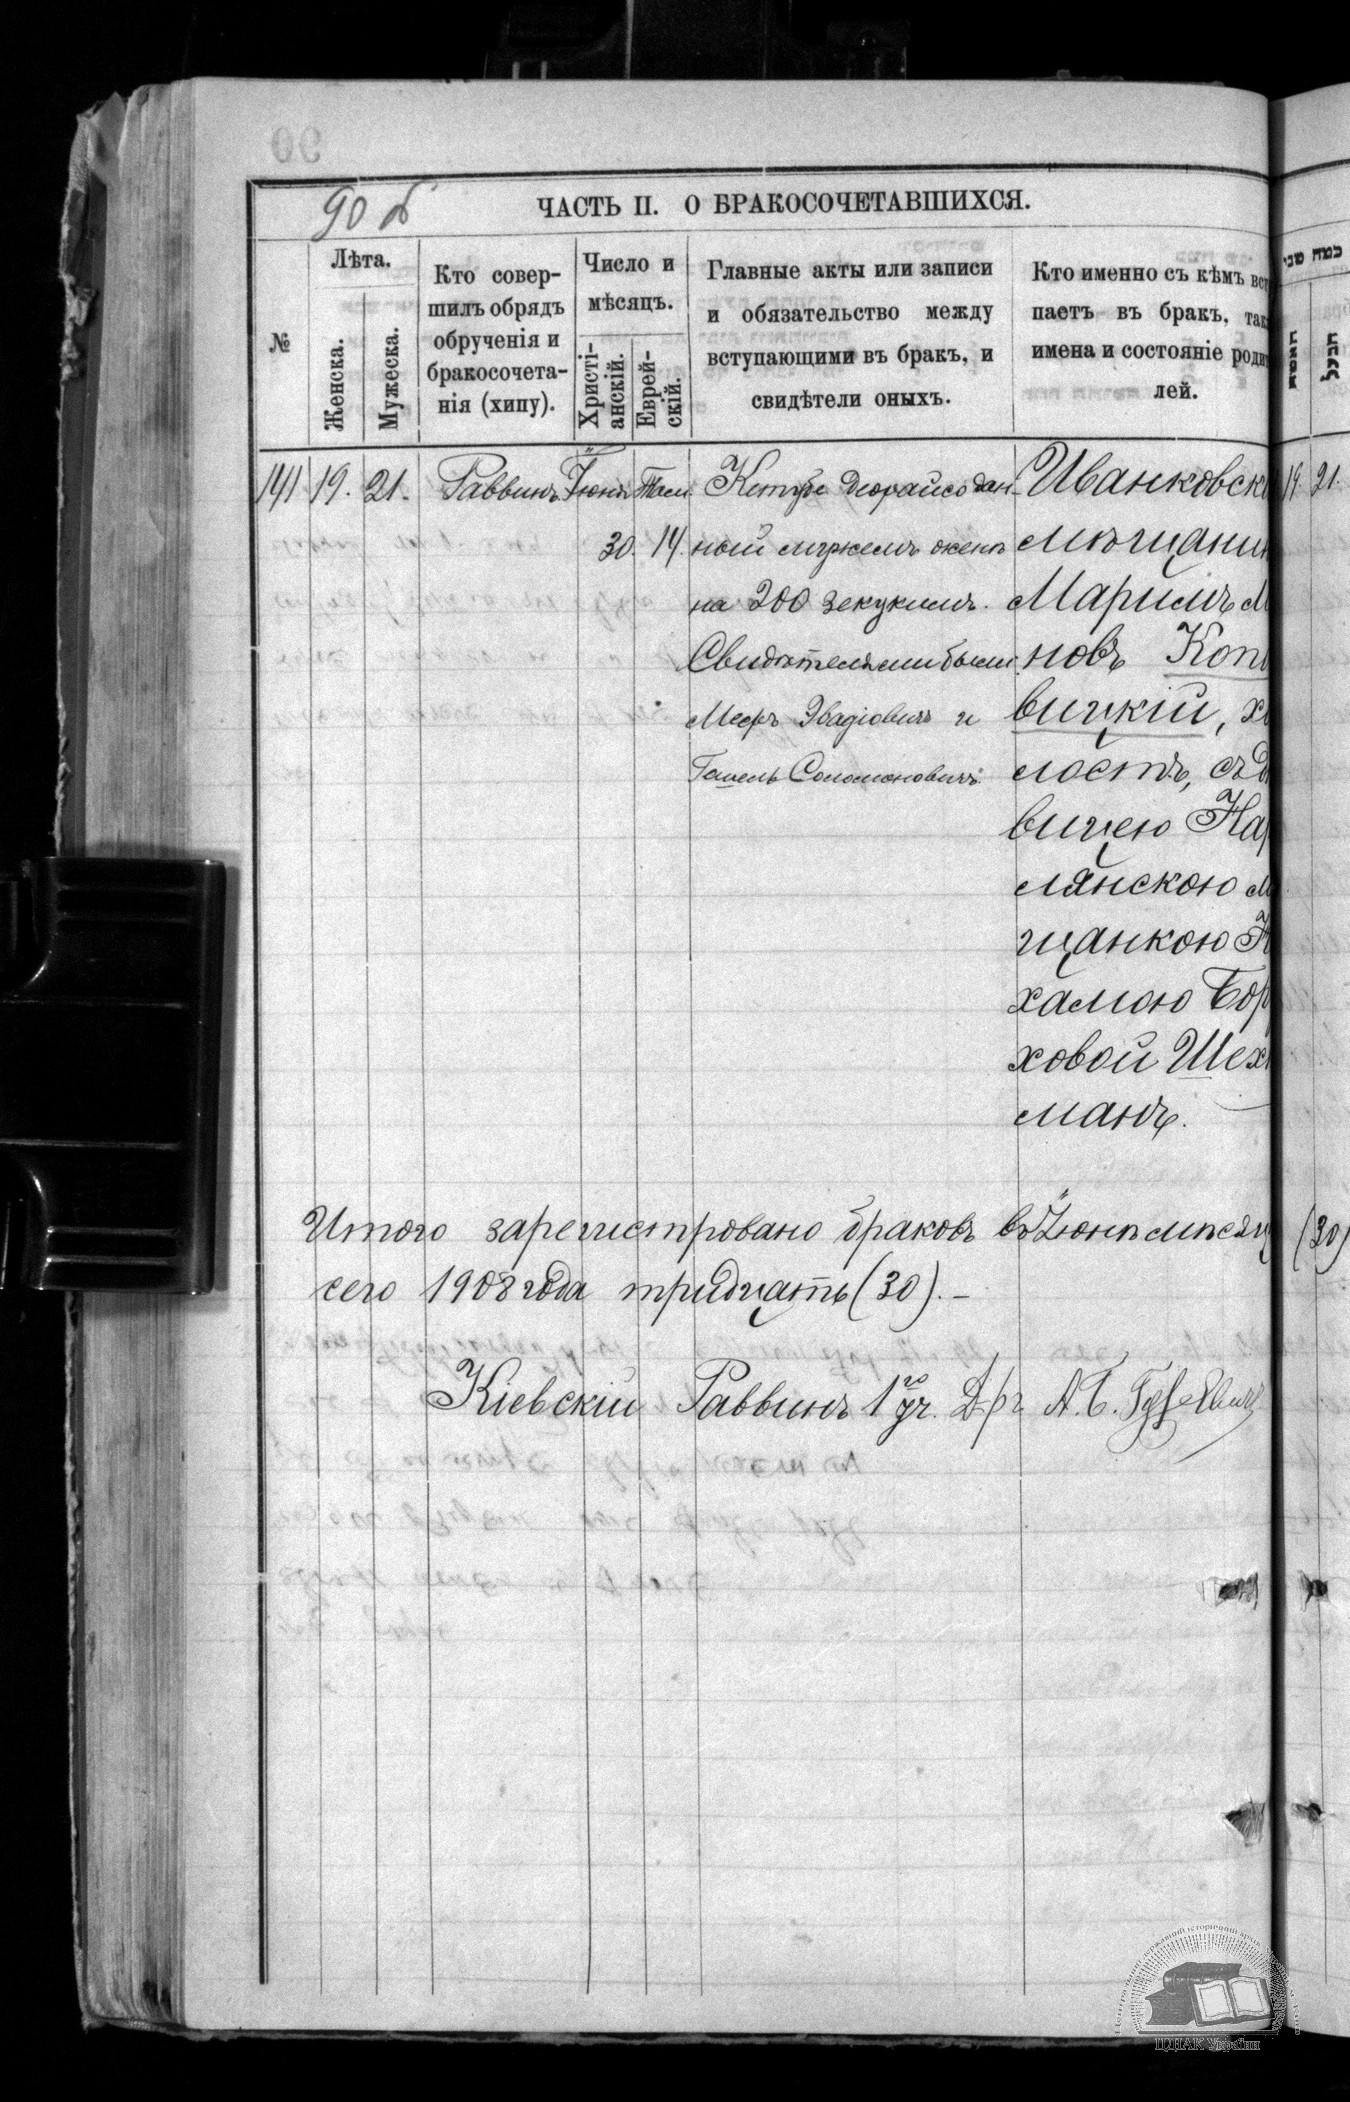 90 б
ЧАСТЬ II. О БРАКОСОЧЕТАВШИХСЯ.
№
Лѣта.
Женска.
Мужеска.
Кто совер-
шилъ обрядъ
обрученія и
бракосочета-
нія (хипу).
Число и
мѣсяцъ.
Христі-
анскій.
Еврей-
скій.
Главные акты или записи
и обязательство между
вступающими въ бракъ, и
свидѣтели оныхъ.
Кто именно съ кѣмъ вст
паетъ въ бракъ, так
имена и состояніе роди
лей.
141 19. 21. Раввинъ Іюня
30. 14.
Кетубе деорайсо дан-
ный мужемъ женѣ
на 200 зекукимъ.
Свидѣтелями были
Мееръ Эвадіовичъ и
Соломоновичъ.
Иванковск
мѣщанин
Маримъ М
новъ Коп
вицкій, х
лостъ, съ д
вицею На
лянскою м
щанкою Н
хамою Бор
ховой Шех
манъ.
19. 21.
Итого зарегистровано браковъ въ Іюнѣ мѣсяц (30)
сего 1908 года тридцать (30). –
Кіевскій Раввинъ 1го уч. Д-ръ А. Б. Гуревичъ
ЦДІАК України